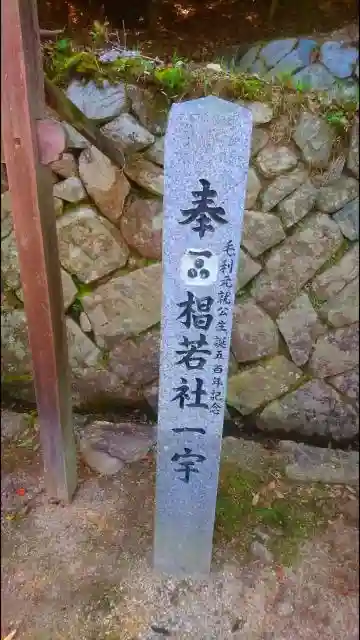 毛利元就公生誕五百年記念
奉椙若社一宇